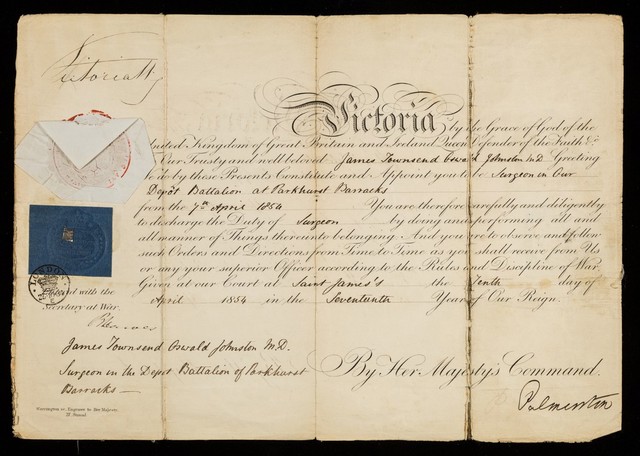 Victoria R
Victoria by the Grace of God of the
United Kingdom of Great Britain and Ireland Queen Defender of the Faith &c
To Our Trusty and well beloved James Townsend Oswald Johnston M.D. Greeting
We do by these Presents Constitute and Appoint you to be Surgeon in Our
Depôt Battalion at Parkhurst Barracks
from the 7th April 1854 You are therefore carefully and diligently
to discharge the Duty of Surgeon by doing and performing all and
all manner of Things thereunto belonging And you are to observe and follow
such Orders and Directions from Time to Time as you shall receive from Us
or any your superior Officer according to the Rules and Discipline of War.
Given at our Court at Saint James's the Tenth day of
April 1854 in the Seventeenth Year of Our Reign.
LONDON
Entered with the
Secretary at War.
By Her Majesty's Command.
Palmerston
James Townsend Oswald Johnston M.D.
Surgeon in the Depot Battalion of Parkhurst
Barracks —
Warrington sc. Engraver to Her Majesty,
27 Strand